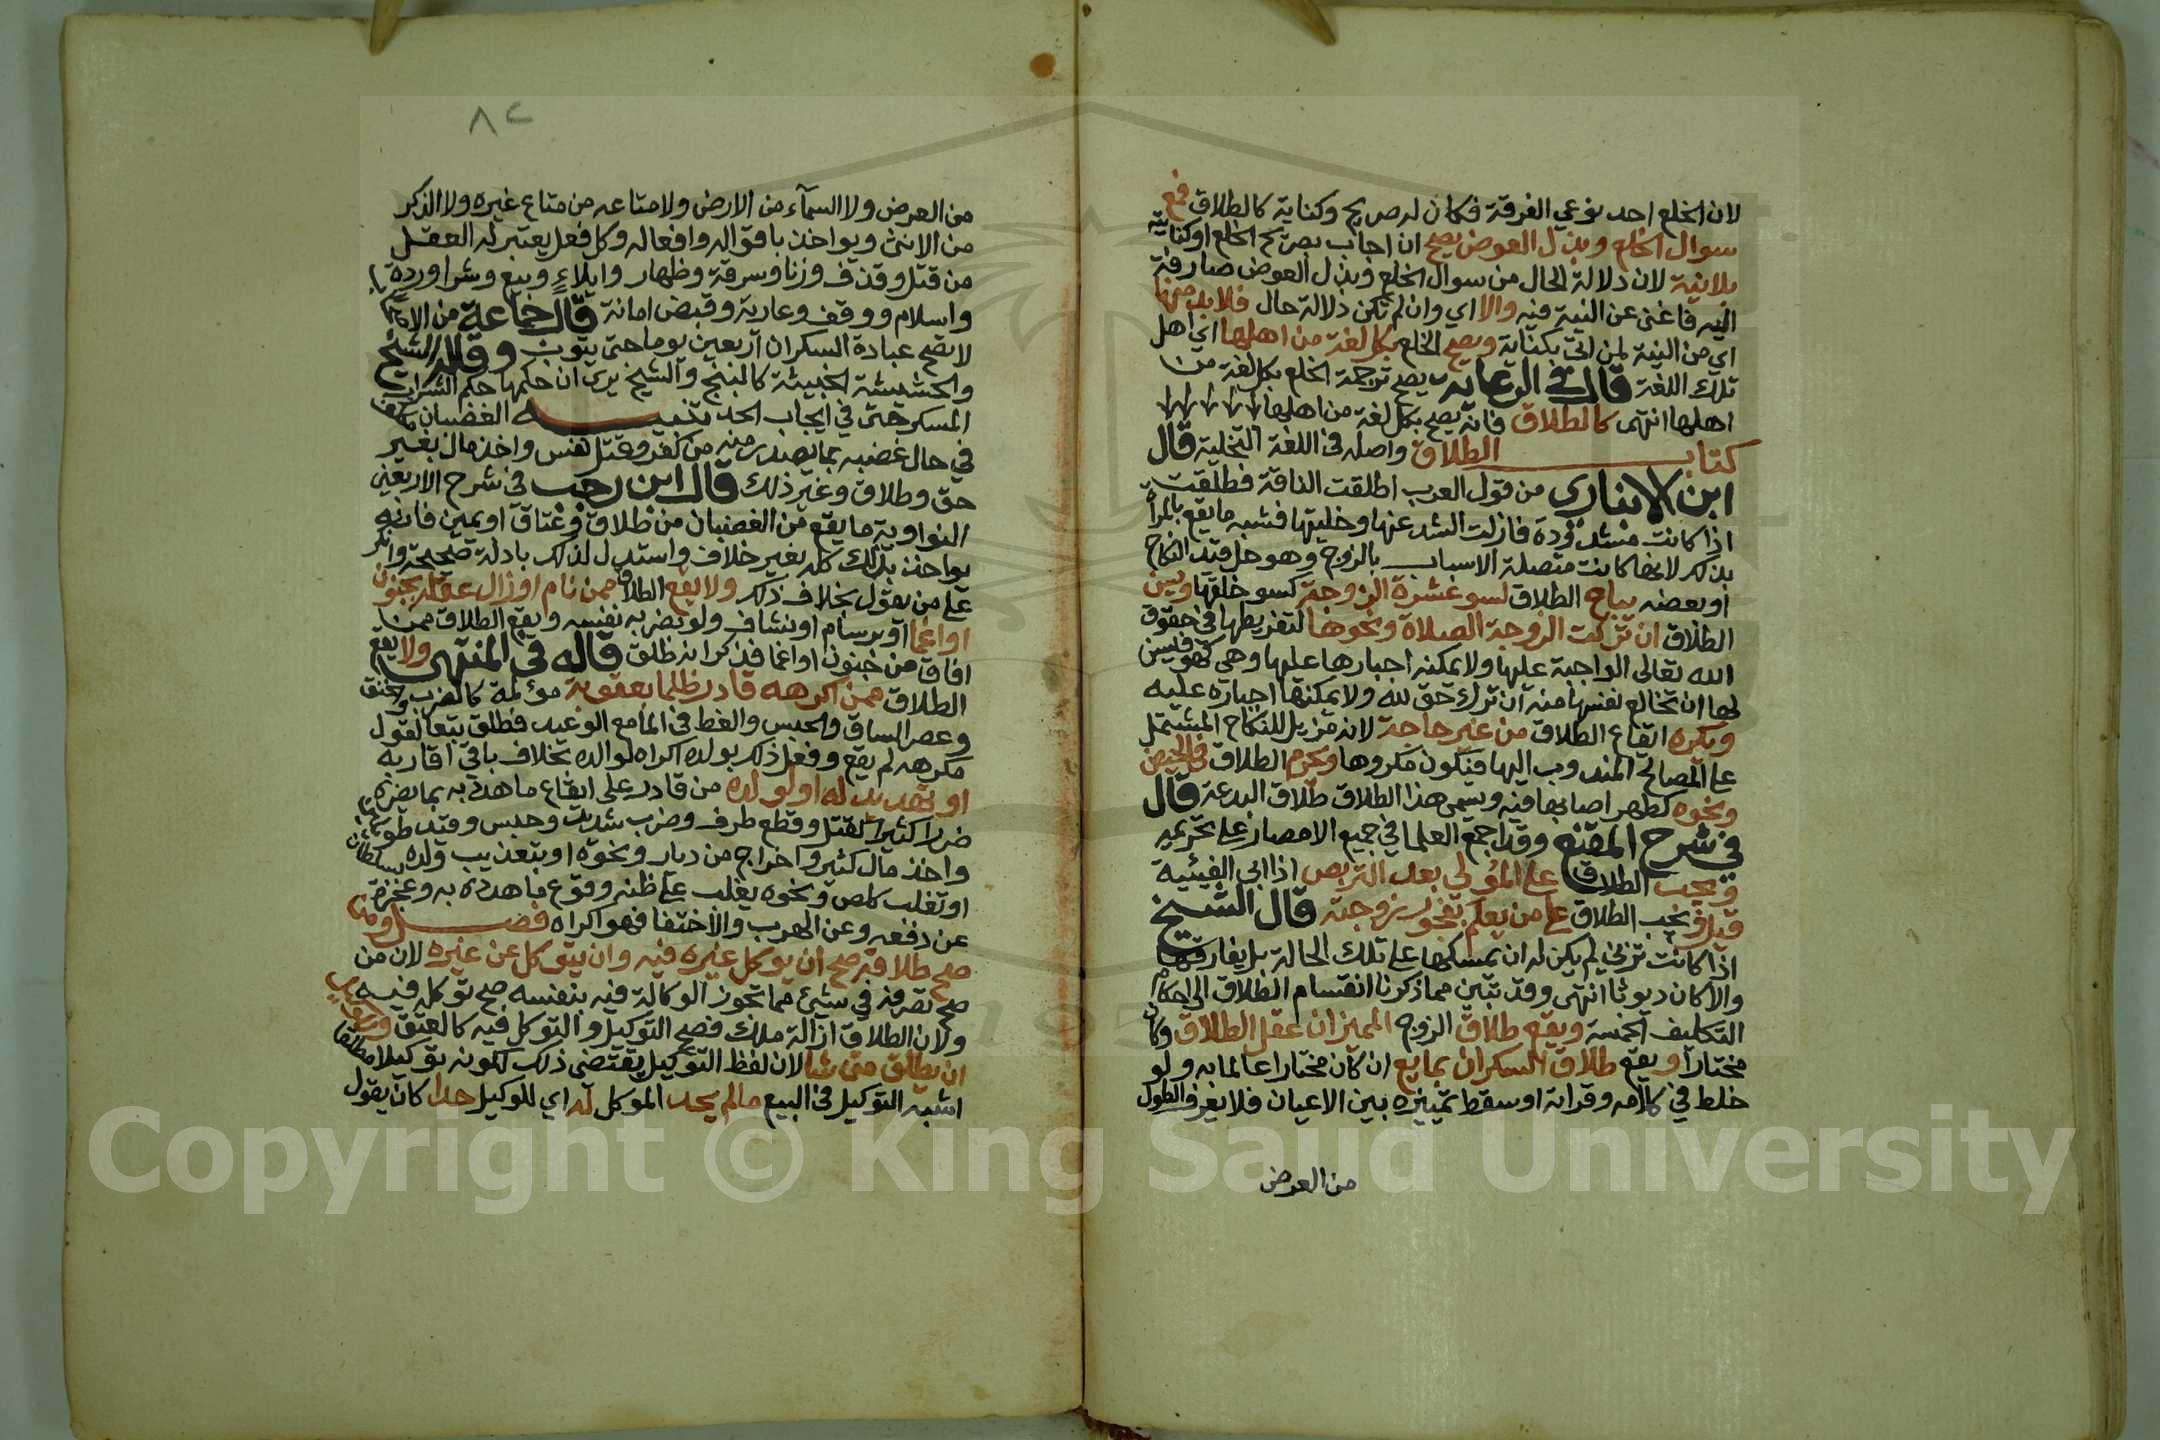 لان الخلع احد نوعي الفرقة فكان له صريح وكناية كالطلاق فمع
سوال الخلع وبذل العوض يصح ان اجاب بصريح الخلع او كنايته
بلانية لان دلالة الحال من سوال الخلع وبذل العوض صارفة
اليه فاغنى عن النية فيه والا اي وان لم تكن دلالة حال فلا بد منها
اي من النية لمن اتى بكناية ويصح الخلع بكل لغة من اهلها اي اهل
تلك اللغة قال في الرعاية يصح ترجمة الخلع بكل لغة من
اهلها انتهى كالطلاق فانه يصح بكل لغة من اهلها
كتاب الطلاق واصله في اللغة التخلية قال
ابن الانباري من قول العرب اطلقت الناقة فطلقت
اذا كانت مشدودة فازلت الشد عنها وخليتها فشبه ما يقع بالمراة
بذلك لانها كانت متصلة الاسباب بالزوج وهو حل قيد النكاح
او بعضه يباح الطلاق لسو عشرة الزوجة كسو خلقها ويسن
الطلاق ان تركت الزوجة الصلاة ونحوها لتفريطها في حقوق
الله تعالى الواجبة عليها ولا يمكنه اجبارها عليها وهي كهو فيسن
لها ان تخالع نفسها منه ان ترك حق لله ولا يمكنها اجباره عليه
ويكره ايقاع الطلاق من غير حاجة لانه مزيل للنكاح المشتمل
على المصالح المندوب اليها فيكون مكروها ويحرم الطلاق في الحيض
ونحوه كطهر اصابها فيه ويسمى هذا الطلاق طلاق البدعة قال
في شرح المقنع وقد اجمع العلما في جميع الامصار على تحريمه
ويجب الطلاق على المؤلي بعد التربص اذا ابى الفيئية
قيل ويجب الطلاق على من يعلم بفجور زوجته قال الشيخ
اذا كانت تزني لم يكن له ان يمسكها على تلك الحالة بل يفارقها
والا كان ديوثا انتهى وقد تبين مما ذكرنا انقسام الطلاق الى احكام
التكليف الخمسة ويقع طلاق الزوج المميز ان عقل الطلاق وكان
مختارا ويقع طلاق السكران بمايع ان كان مختارا عالما به ولو
خلط في كلامه وقراته او سقط تمييزه بين الاعيان فلا يعرف الطول
من العرض
٨٢
من العرض ولا السمآء من الارض ولا متاعه من متاع غيره ولا الذكر
من الانثى ويواخذ باقواله وافعاله وكل فعل يعتبر له العقل
من قتل وقذف وزنا وسرقة وظهار وايلاء وبيع وشرا وردة
واسلام ووقف وعارية وقبض امانة قال جماعة من الاصحاب
لا تصح عبادة السكران اربعين يوما حتى يتوب وقاله الشيخ
والحشيشة الخبيثة كالبنج والشيخ يرى ان حكمها حكم الشراب
المسكر حتى في ايجاب الحد تنبيه الغضبان مكلف
في حال غضبه بما يصدر منه من كفر وقتل نفس واخذ مال بغير
حق وطلاق وغير ذلك قال ابن رجب في شرح الاربعين
النواوية ما يقع من الغضبان من طلاق وعتاق او يمين فانه
يواخذ بذلك كله بغير خلاف واستدل لذلك بادلة صحيحة وانكر
على من يقول بخلاف ذلك ولا يقع الطلاق ممن نام او زال عقله بجنون
او اغما او برسام او نشاف ولو بضربه نفسه ويقع الطلاق ممن
افاق من جنون او اغما فذكر انه طلق قاله في المنتهى ولا يقع
الطلاق ممن اكرهه قادر ظلما بعقوبة مؤلمة كالضرب وخنق
وعصر الساق والحبس والغط في الما مع الوعيد فطلق تبعا لقول
مكرهه لم يقع وفعل ذلك بولده اكراه لوالده بخلاف باقي اقاربه
او تهديد له او لولده من قادر على ايقاع ما هدد به بما يضره
ضررا كثيرا كقتل وقطع طرف وضرب شديد وحبس وقيد طويلين
واخذ مال كثير واخراج من ديار ونحوه او بتعذيب ولده بسلطان
او تغلب كلص ونحوه يغلب على ظنه وقوع ما هدده به وعجزه
عن دفعه وعن الهرب والاختفا فهو اكراه فصل ومن
صح طلاقه صح ان يوكل غيره فيه وان يتوكل عن غيره لان من
صح تصرفه في شيئ مما تجوز الوكالة فيه بنفسه صح توكله فيه
ولان الطلاق ازالة ملك فصح التوكيل والتوكل فيه كالعتق
ان يطلق متى شا لان لفظ التوكيل يقتضي ذلك لكونه توكيلا مطلقا
اشبه التوكيل في البيع مالم يحد الموكل له اي للوكيل حدا كان يقول
Copyright © King Saud University